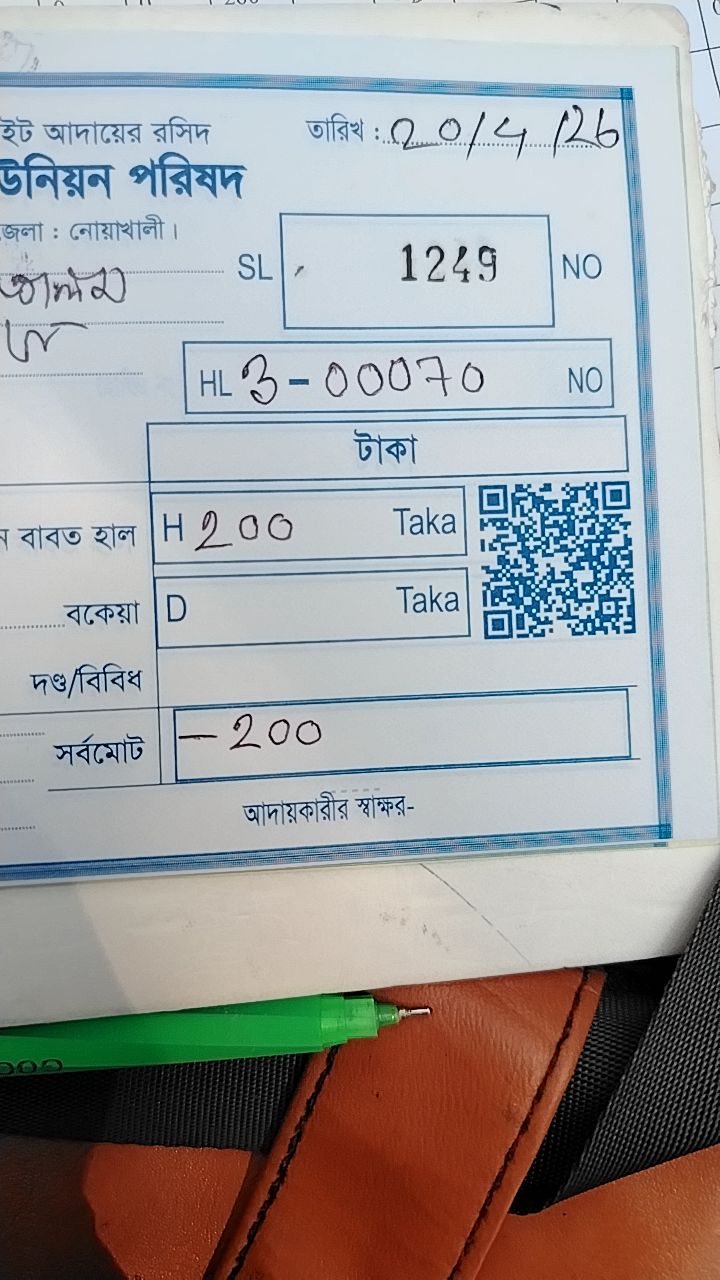 ইট আদায়ের রসিদ
তারিখ : 20/4/26
উনিয়ন পরিষদ
জেলা : নোয়াখালী।
SL 1249 NO
আলম
HL 3-00070 NO
টাকা
ন বাবত হাল H 200 Taka
বকেয়া D Taka
দণ্ড/বিবিধ
সর্বমোট -200
আদায়কারীর স্বাক্ষর-